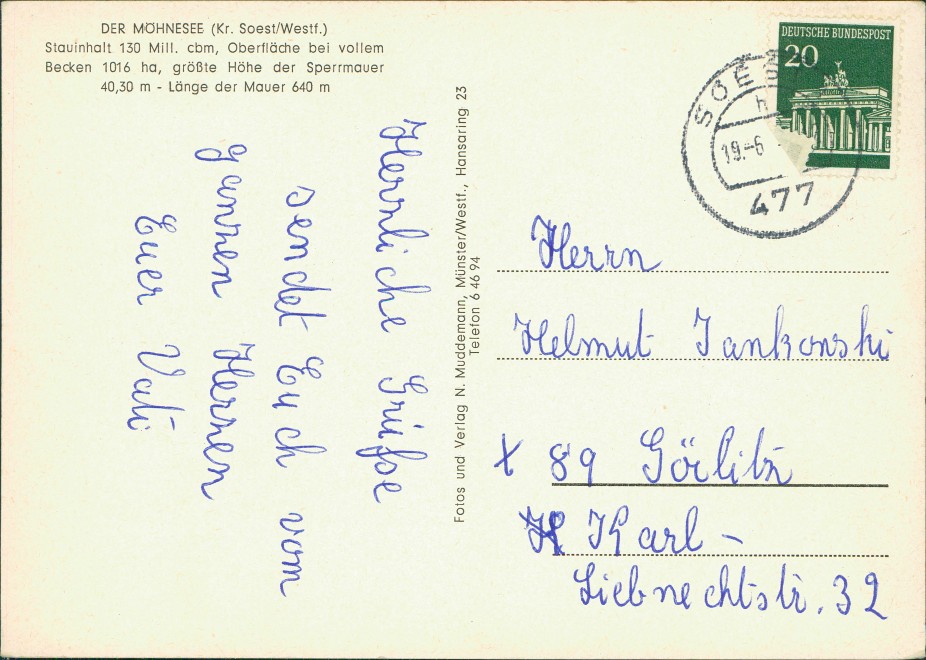 DER MÖHNESEE (Kr. Soest/Westf.)
Stauinhalt 130 Mill. cbm, Oberfläche bei vollem
Becken 1016 ha, größte Höhe der Sperrmauer
40,30 m - Länge der Mauer 640 m
Herzliche Grüße
sendet Euch vom
ganzen Herzen
Euer Vati
Fotos und Verlag N. Muddemann, Münster/Westf., Hansaring 23
Telefon 6 46 94
DEUTSCHE BUNDESPOST
20
SOEST
h
19.-6
477
Herrn
Helmut Jankowski
x 89 Görlitz
Karl-
Liebnechtstr. 32